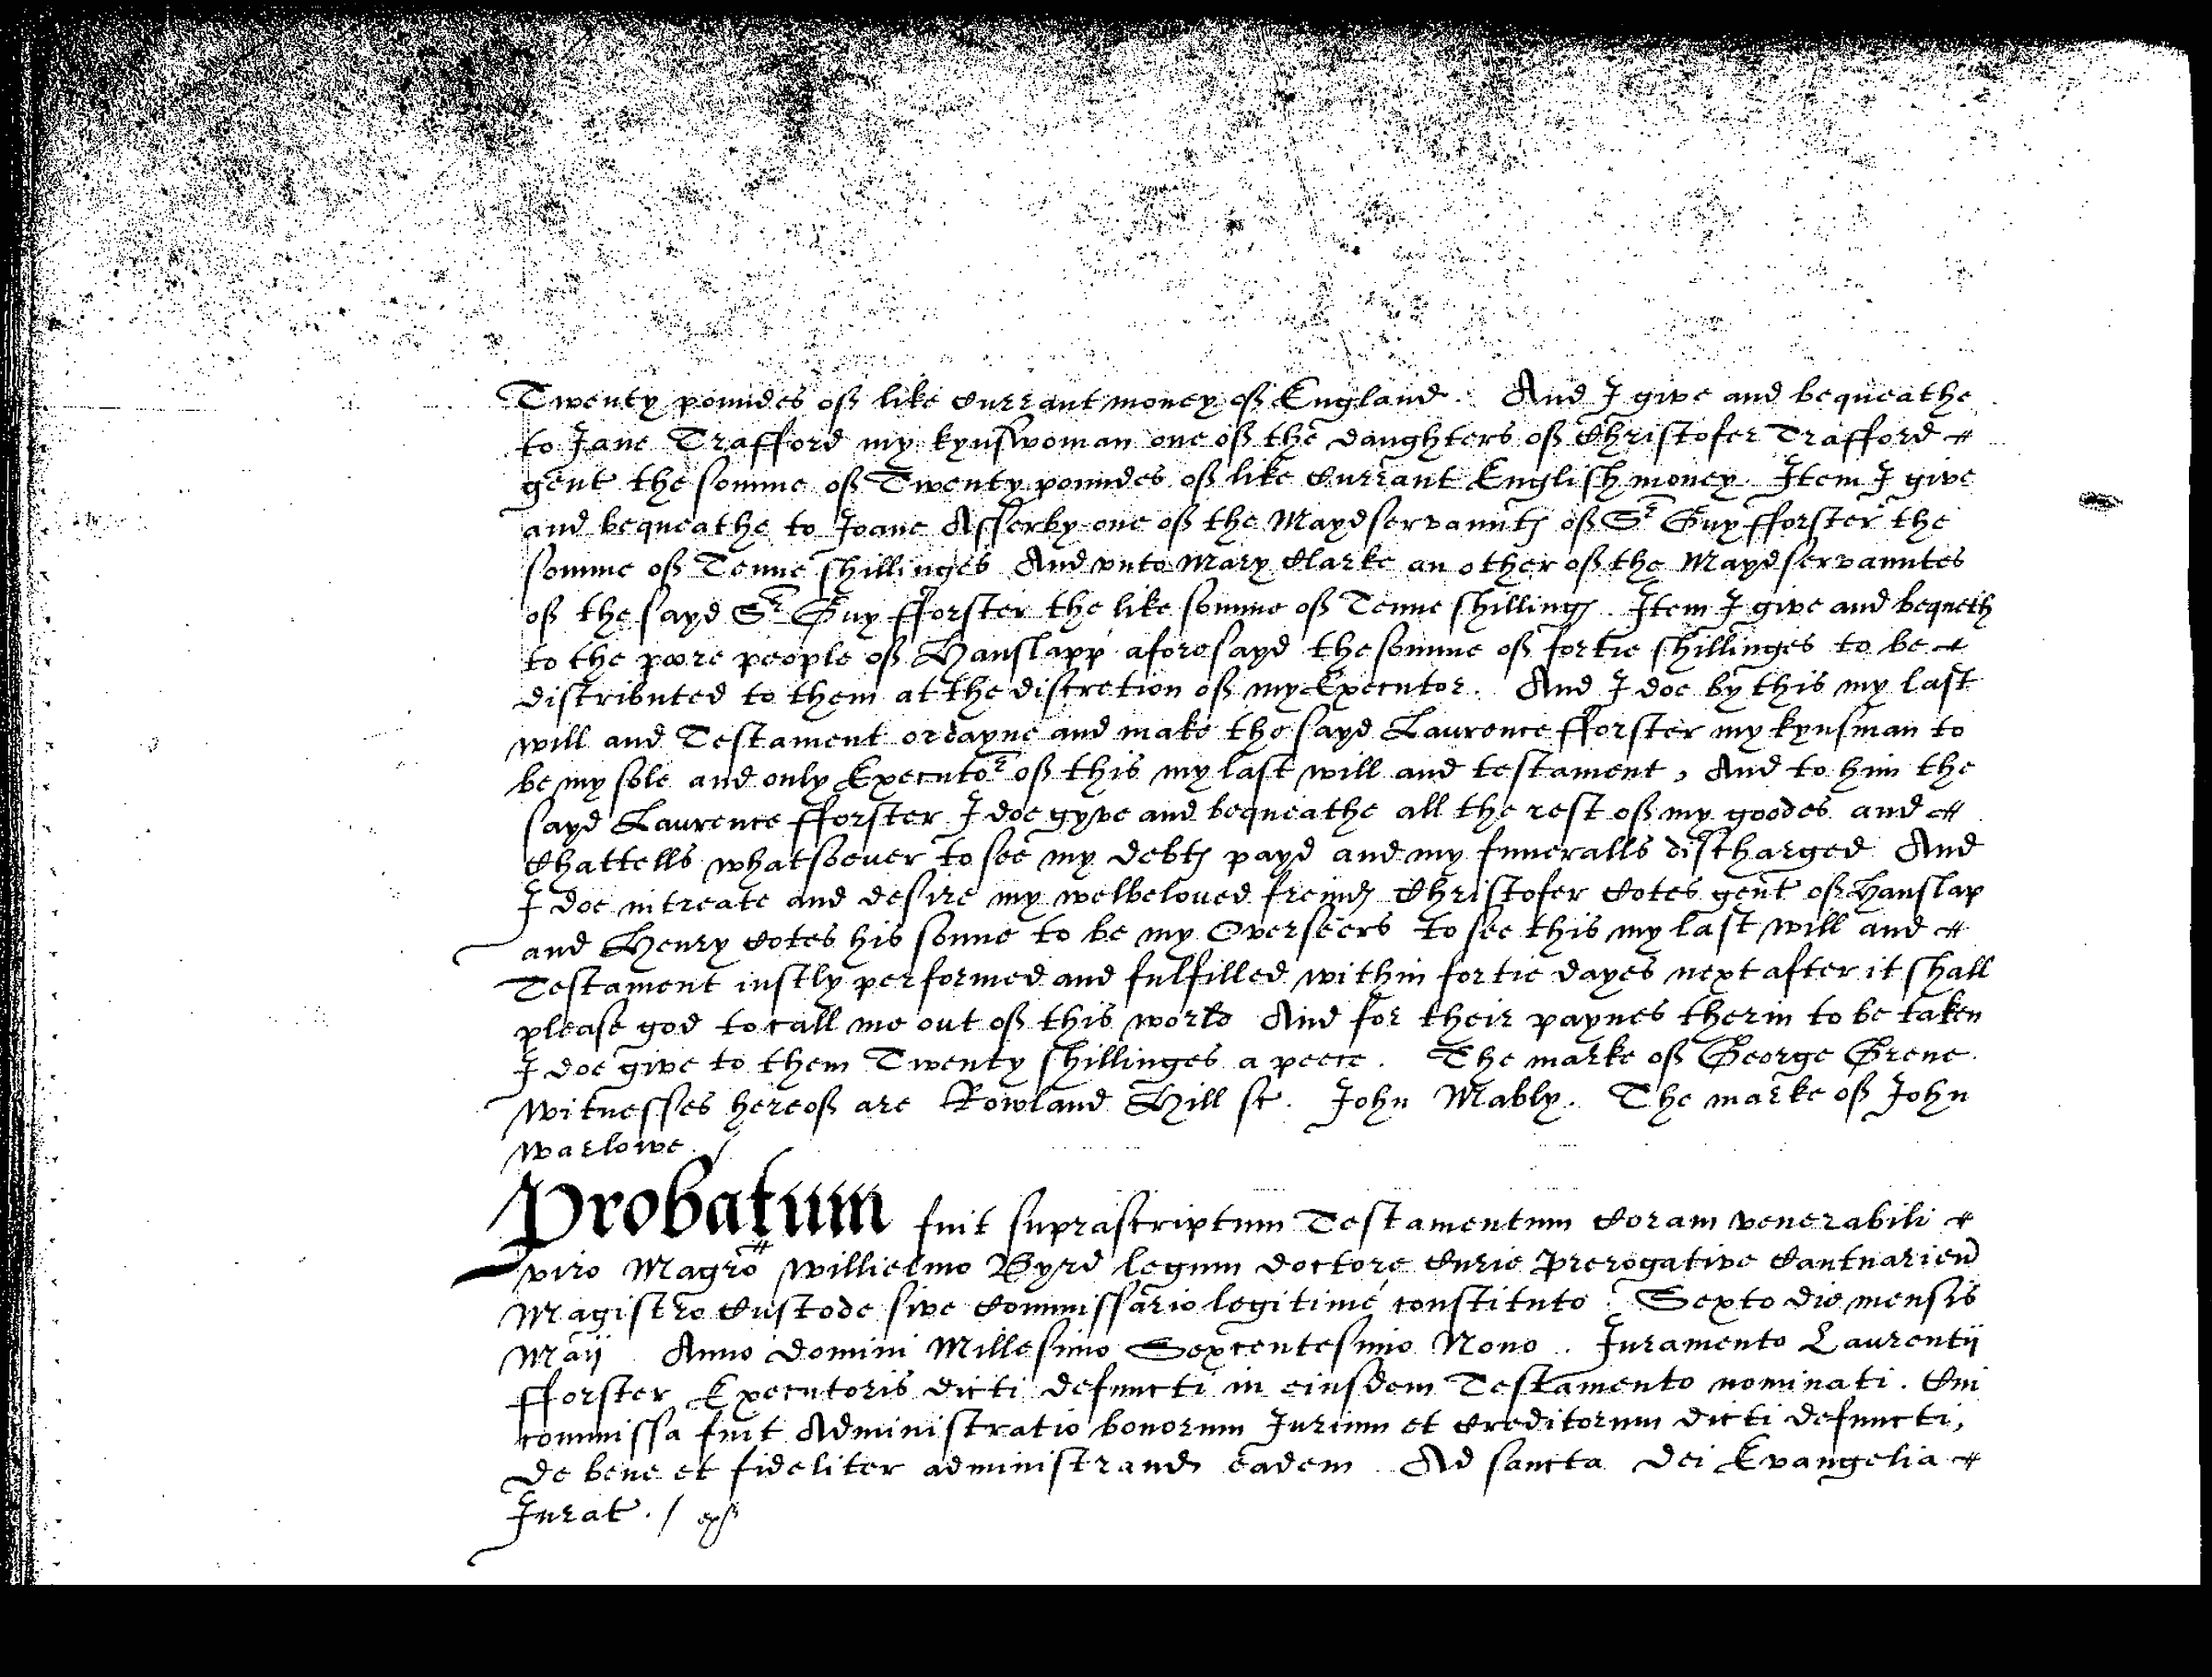 Twenty poundes of like Currant money of England. And I give and bequeathe
to Jane Trafford my kynswoman one of the daughters of Christofer Trafford
gent the somme of Twenty poundes of like Currant English money. Item I give
and bequeathe to Joane Asserby one of the Maydservauntes of Sr Guy fforster the
somme of Tenne shillinges And vnto Mary Clarke an other of the Maydservauntes
of the sayd Sr Guy fforster the like somme of Tenne shillinges. Item I give and bequeth
to the poore people of Hanslapp aforesayd the somme of fortie shillinges to be
distributed to them at the discretion of my Executor. And I doe by this my last
will and Testament ordayne and make the sayd Laurence fforster my kynsman to
be my sole and only Executor of this my last will and testament, And to him the
sayd Laurence fforster I doe gyve and bequeathe all the rest of my goodes and
Chattells whatsoeuer to see my debtes payd and my funeralls discharged And
I doe intreate and desire my welbeloued freindes Christofer Cotes gent of Hanslap
and Henry Cotes his sonne to be my Overseers to see this my last will and
Testament iustly performed and fulfilled within fortie dayes next after it shall
please god to call me out of this world And for their paynes therin to be taken
I doe give to them Twenty shillinges a peece. The marke of George Grene
Witnesses hereof are Rowland Hill sc. John Mably. The marke of John
Warlowe. /
Probatum fuit suprascriptum Testamentum Coram venerabili
viro Magro Willielmo Byrd legum doctore Curie Prerogative Cantuarien
Magistro Custode sive Commissario legitime constituto. Sexto die mensis
Maij Anno Domini Millesimo Sexcentesimo Nono. Juramento Laurentij
fforster Executoris dicti defuncti in eiusdem Testamento nominati. Cui
commissa fuit Administratio bonorum Jurium et Creditorum dicti defuncti,
De bene et fideliter administrand eadem Ad sancta Dei Evangelia
Jurat. /